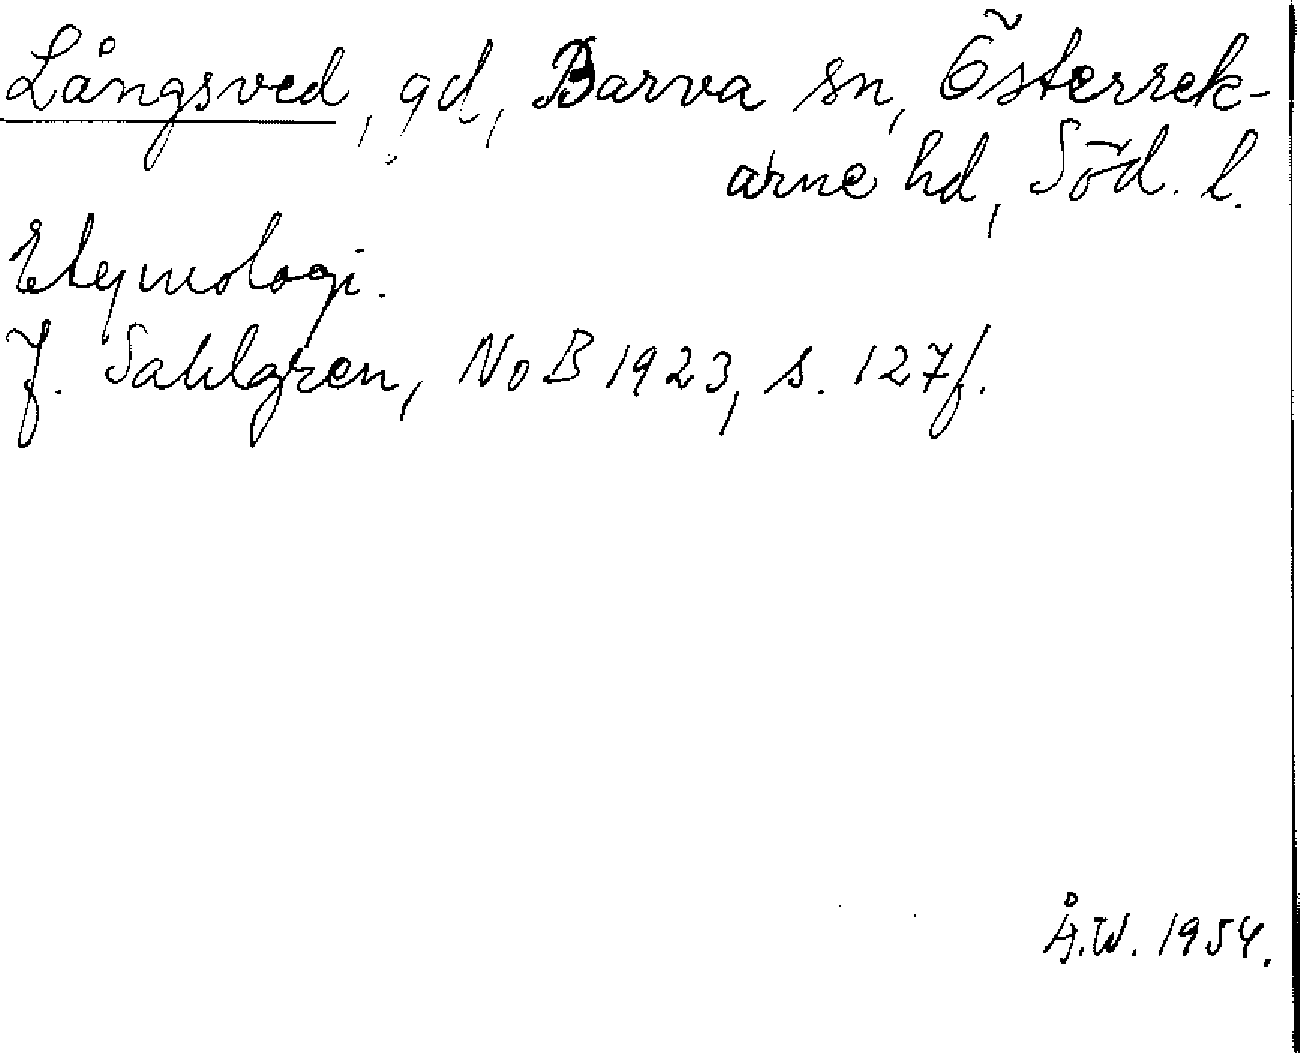 Långsved, gd, Barva sn, Österrek-
arne hd, Söd. l.
Etymologi.
J. Sahlgren, NoB 1923, s. 127f.
Å.W. 1954.